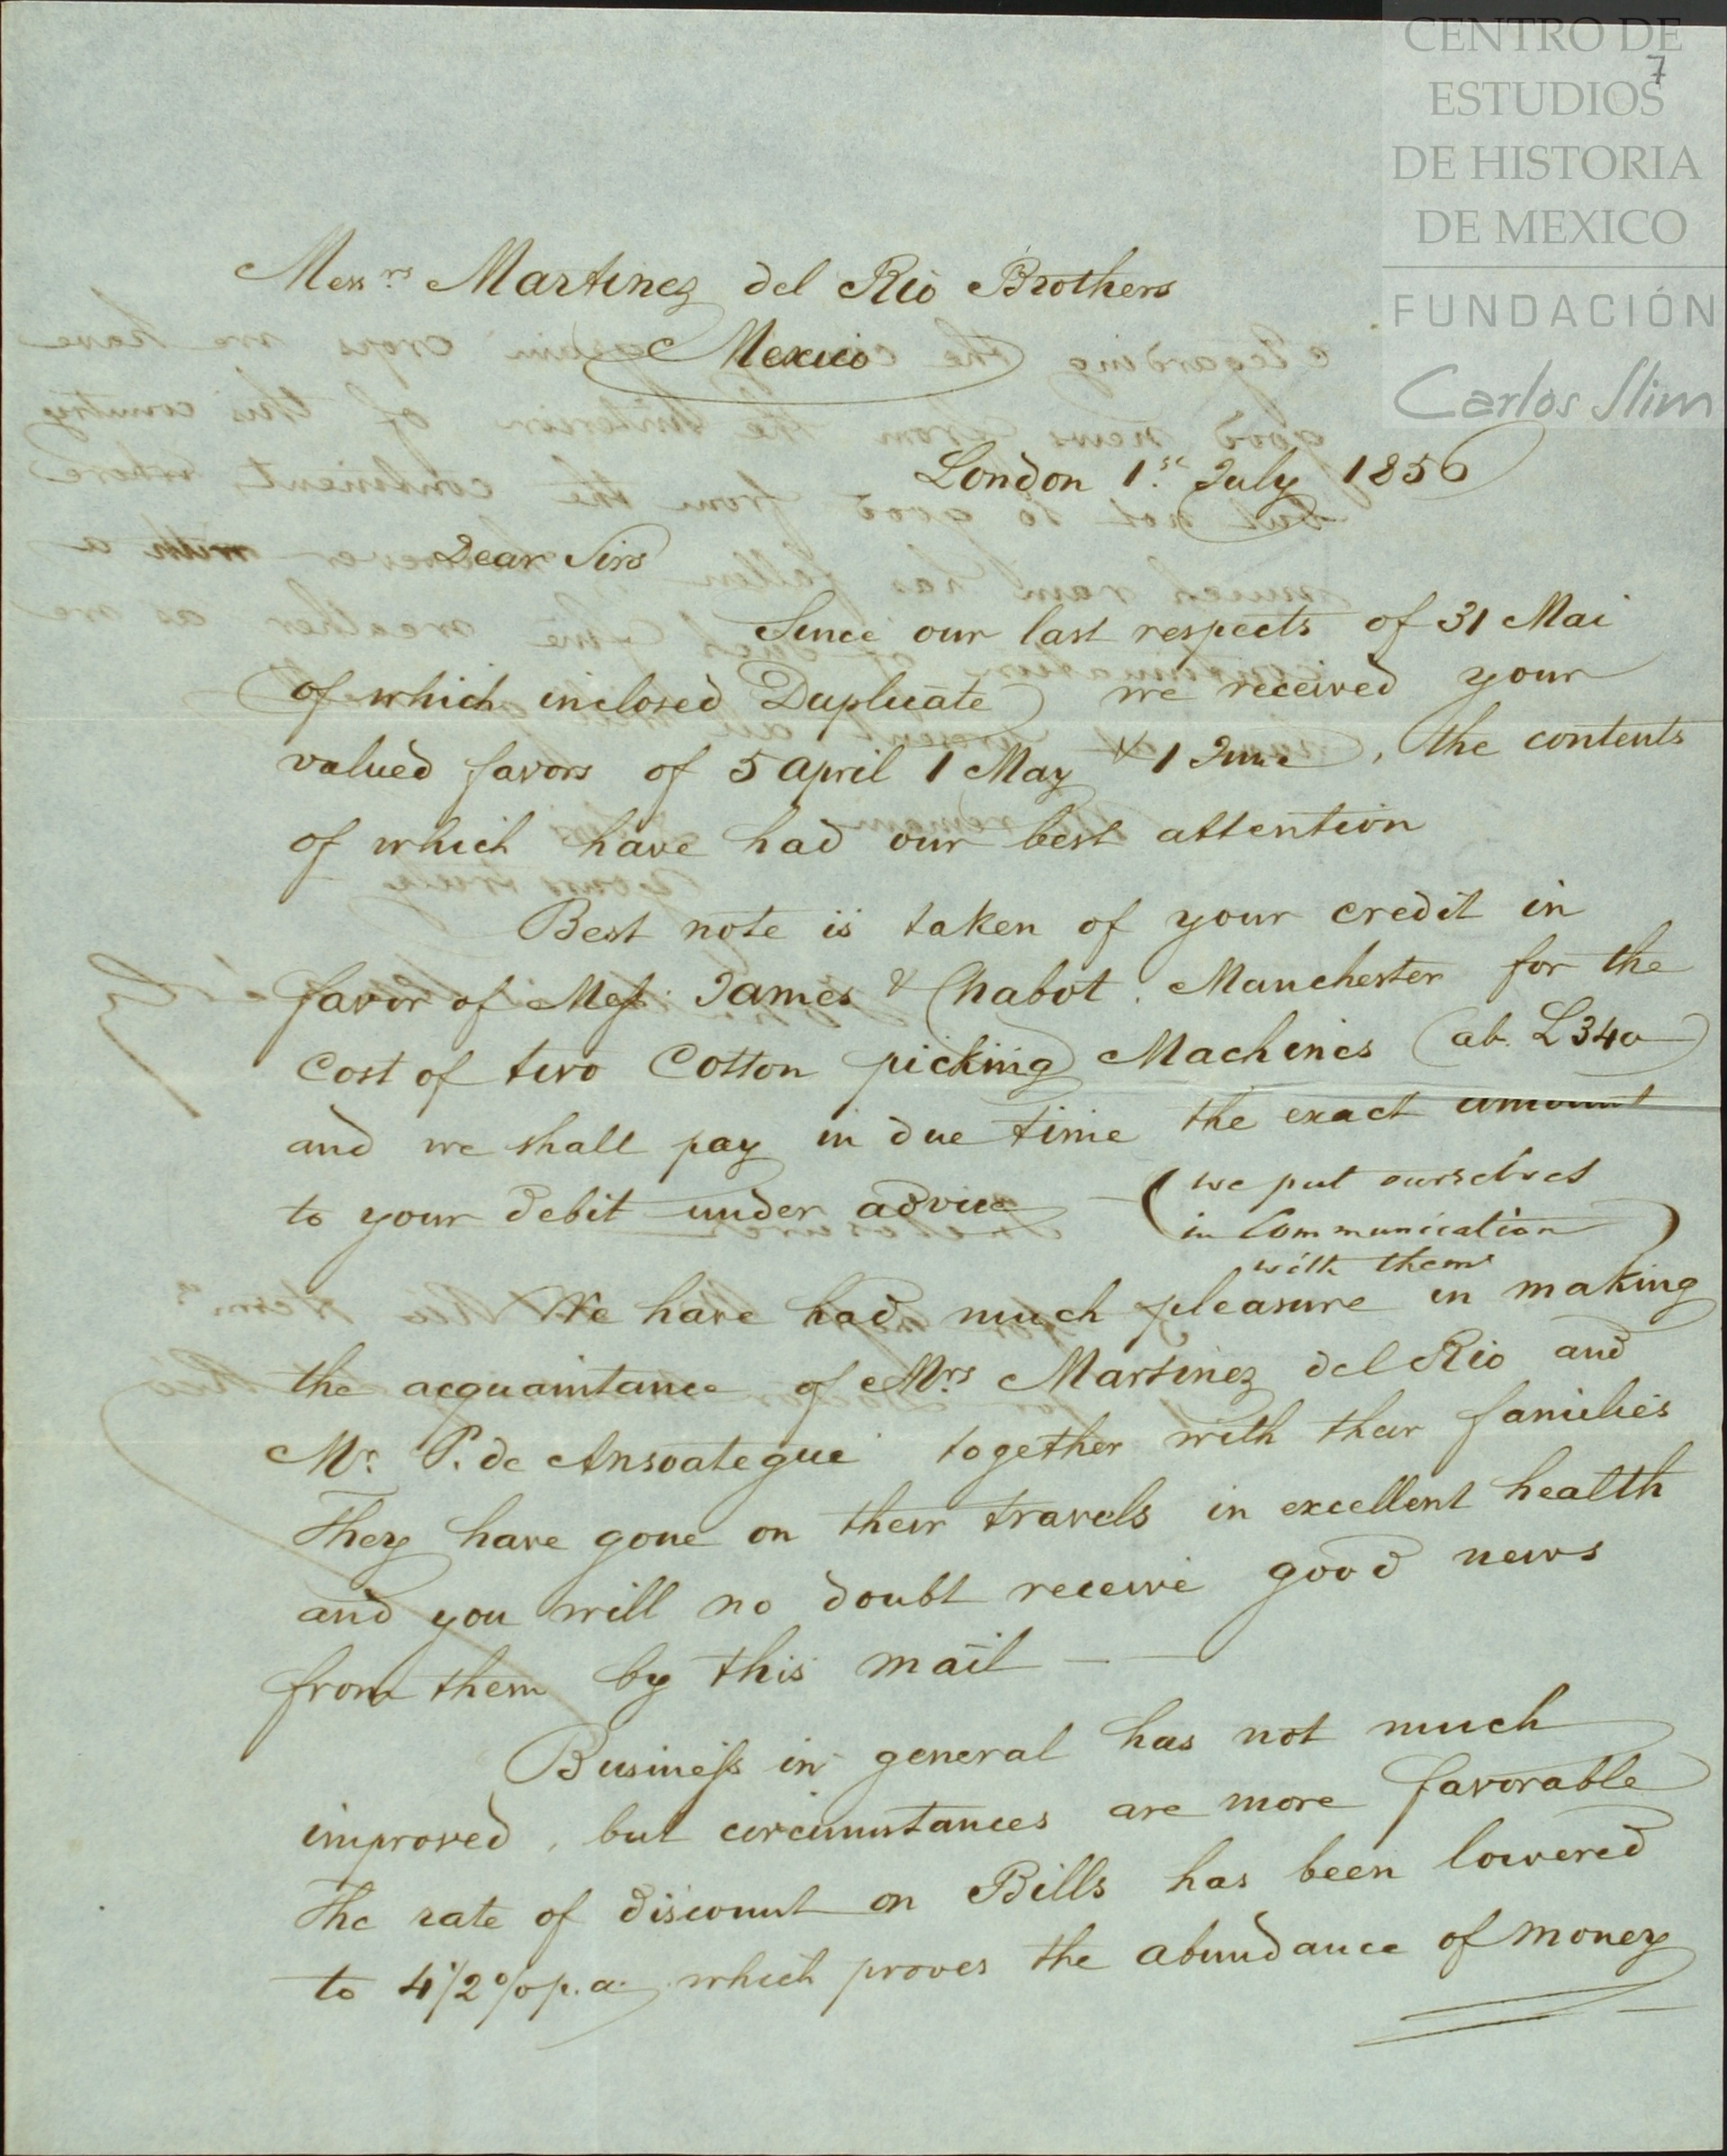 CENTRO DE
ESTUDIOS
DE HISTORIA
DE MEXICO
FUNDACIÓN
Carlos Slim
7
Messrs Martinez del Rio Brothers
Mexico
London 1st July 1856
Dear Sirs
Since our last respects of 31 Mai
(of which inclosed Duplicate) we received your
valued favors of 5 April 1 May & 1 June, the contents
of which have had our best attention
Best note is taken of your credit in
favor of Mess. James & Chabot. Manchester for the
cost of two Cotton picking Machines (ab. L340)
and we shall pay in due time the exact amount
to your debit under advice – (we put ourselves
in Communication
with them)
We have had much pleasure in making
the acquaintance of Mrs Martinez del Rio and
Mr. P. de Ansoategui together with their families
They have gone on their travels in excellent health
and you will no doubt receive good news
from them by this mail —
Business in general has not much
improved, but circumstances are more favorable
The rate of discount on Bills has been lowered
to 4 1/2 % p. a. which proves the abundance of money